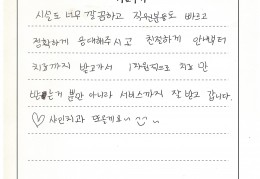 시설도 너무 깔끔하고 직원분들도 빠르고
정확하게 응대해주시고 친절하게 안내부터
치료까지 받고가서 1차원적으로 치료 만
받는거 뿐만 아니라 서비스까지 잘 받고 갑니다.
♡ 사인치과 또올게요~ ~